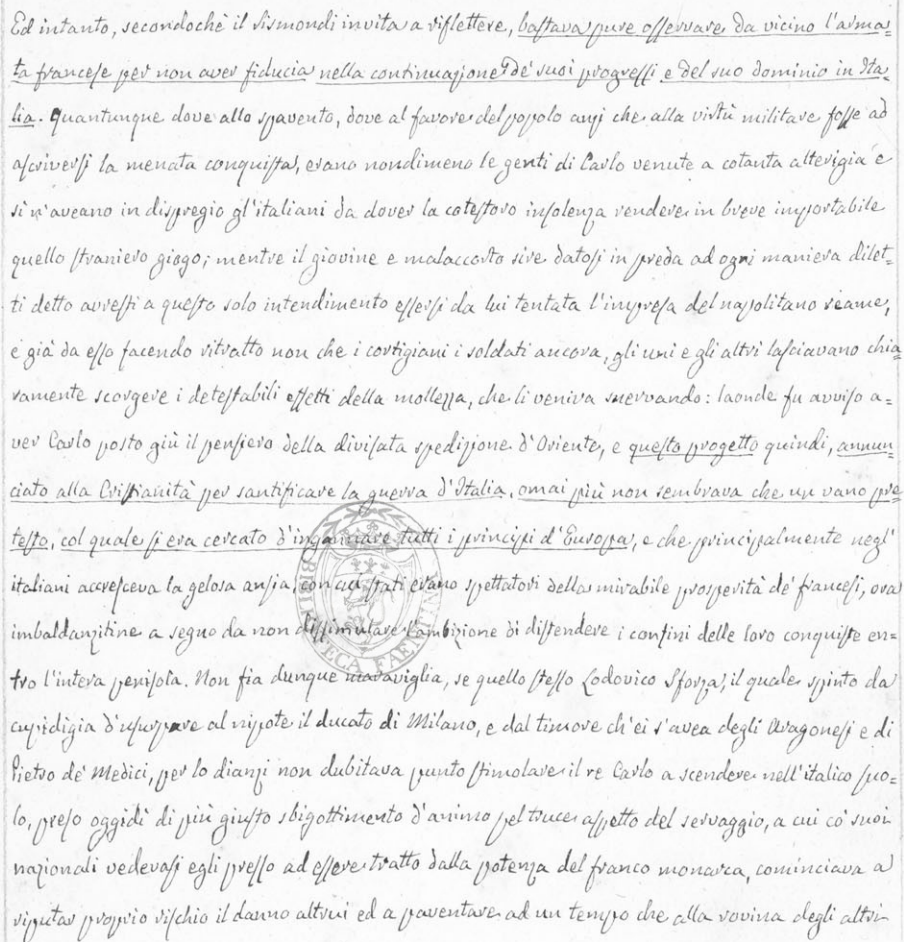 Ed intanto, secondochè il Sismondi invita a riflettere, bastava pure osservare da vicino l'arma=
ta francese per non aver fiducia nella continuazione de' suoi progressi e del suo dominio in Ita=
lia. Quantunque dove allo spavento, dove al favore del popolo anzi che alla virtù militare fosse ad
ascriversi la menata conquista, erano nondimeno le genti di Carlo venute a cotanta alterigia e
sì n'aveano in dispregio gl'italiani da dover la costoro insolenza rendere in breve importabile
quello straniero giogo; mentre il giovine e malaccorto sire datosi in preda ad ogni maniera dilet=
ti detto avresti a questo solo intendimento essersi da lui tentata l'impresa del napolitano reame,
e già da esso facendo ritratto non che i cortigiani i soldati ancora, gli uni e gli altri lasciavano chia=
ramente scorgere i detestabili effetti della mollezza, che li veniva snervando: laonde fu avviso a=
ver Carlo posto giù il pensiero della divisata spedizione d'Oriente, e questo progetto quindi, annun=
ciato alla Cristianità per santificare la guerra d'Italia, omai più non sembrava che un vano pre=
testo, col quale si era cercato d'ingannare tutti i principi d'Europa, e che principalmente negl'
italiani accresceva la gelosa ansia, con cui stati erano spettatori della mirabile prosperità de' francesi, ora
imbaldanzitine a segno da non dissimulare l'ambizione di distendere i confini delle loro conquiste en=
tro l'intera penisola. Non fia dunque maraviglia, se quello stesso Lodovico Sforza, il quale spinto da
cupidigia d'usurpare al nipote il ducato di Milano, e dal timore ch'ei s'avea degli Aragonesi e di
Pietro de' Medici, per lo dianzi non dubitava punto stimolare il re Carlo a scendere nell'italico suo=
lo, preso oggidì di più giusto sbigottimento d'animo pel truce aspetto del servaggio, a cui co' suoi
nazionali vedevasi egli presso ad essere tratto dalla potenza del franco monarca, cominciava a
riputar proprio rischio il danno altrui ed a paventare ad un tempo che alla rovina degli altri